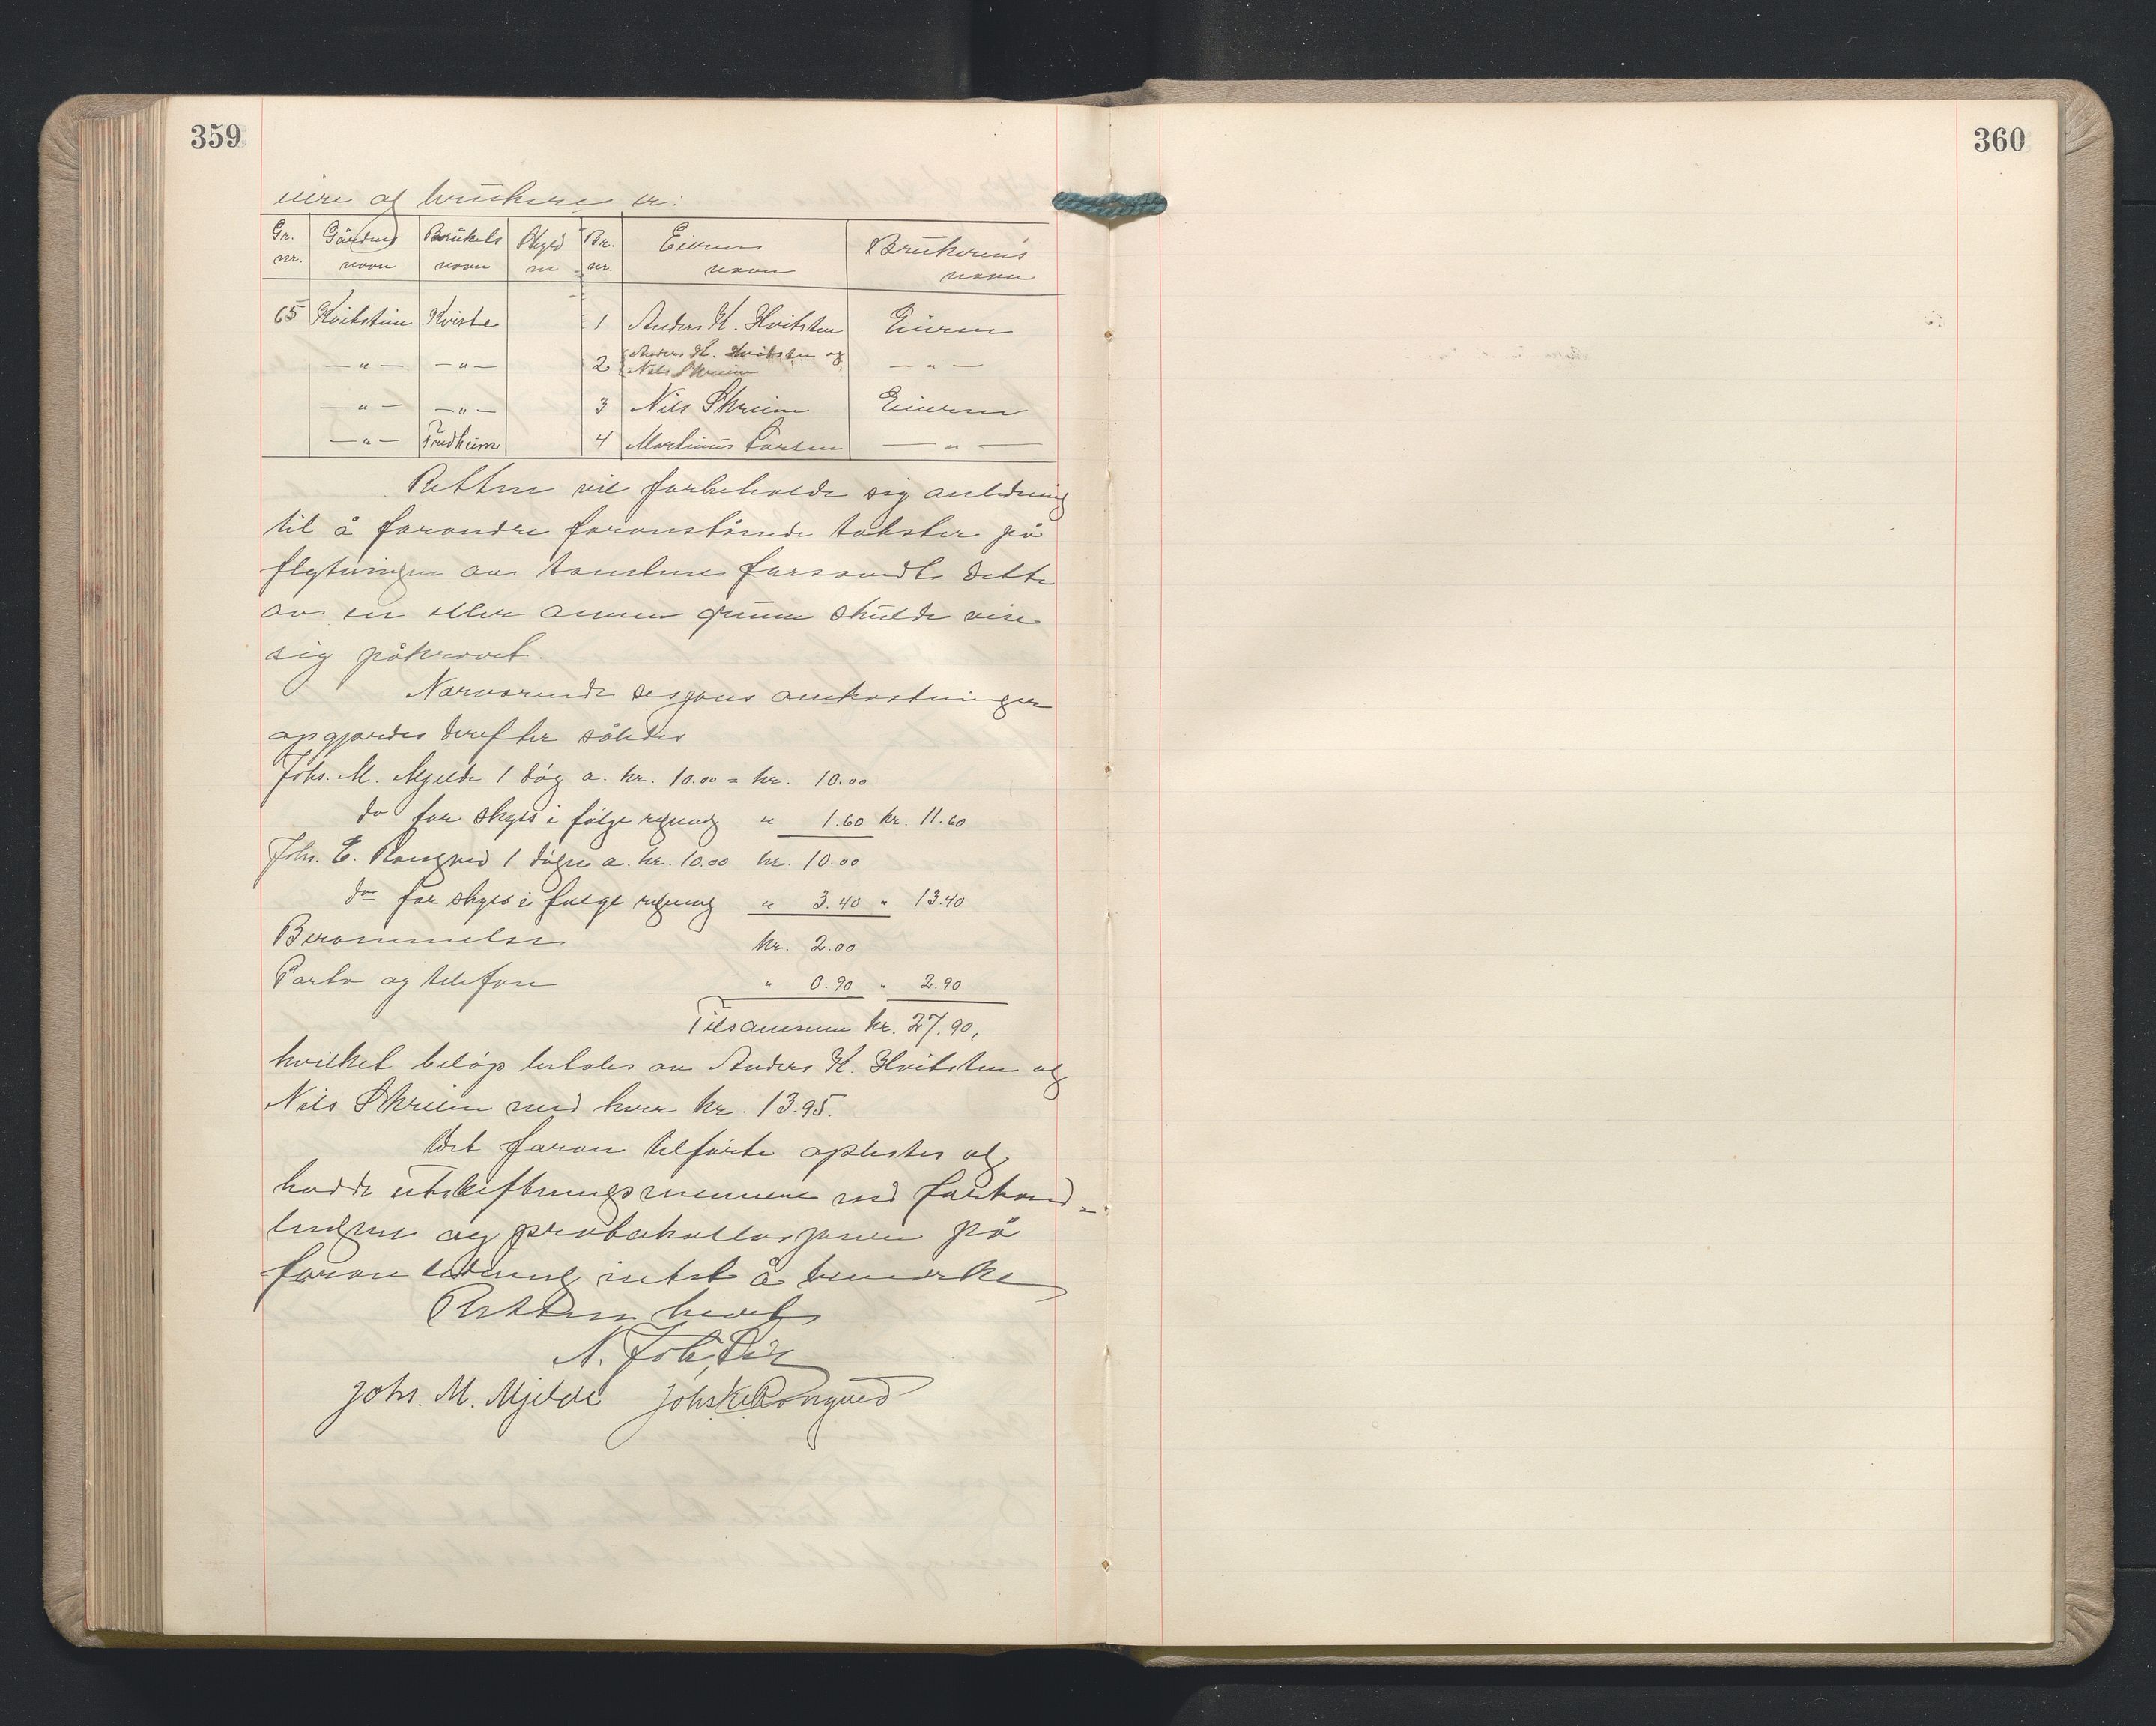 359
eiere og brukere er:
Gr. nr. Gårdens navn Brukets navn Skyld m Br. nr. Eierens navn Brukerens navn
65 Kvitstein Kviste 1 Anders K. Hvitsten Eieren
— " — — " — 2 Anders K. Hvitsten og Nils Skreien — " —
— " — — " — 3 Nils Skreien Eieren
— " — Fredheim 4 Martinus Larsen — " —
Retten vil forbeholde sig anledning
til å forandre foranstående takster på
flytningen av tomtene forsåvidt dette
av en eller annen grunn skulde vise
sig påkrævet.
Nærværende sesjons omkostninger
opgjordes derefter således
Johs. M. Mjelde 1 døg a. kr. 10.00 = kr. 10.00
do for skyss i følge regning " 1.60 kr. 11.60
Johs. E. Rongved 1 døgn a. kr. 10.00 kr. 10.00
do for skyss i følge regning " 3.40 " 13.40
Berammelse kr. 2.00
Porto og telefon " 0.90 " 2.90
Tilsammen kr. 27.90,
hvilket beløp betales av Anders K. Hvitsten og
Nils Skreien med hver kr. 13.95.
Det foran tilførte oplestes og
hadde utskiftningsmennene ved forhand-
lingene og protokollasjonen på
foranledning intet å bemerke
Retten hevet
Johs. M. Mjelde Johs E Rongved
360